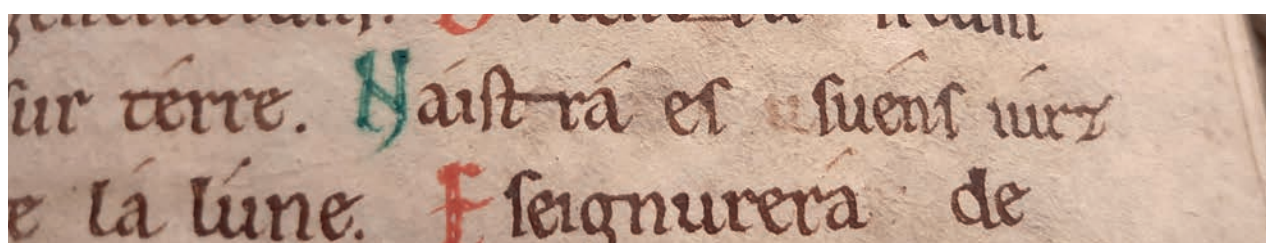 sur terre. Naistra es suens iurz
e la lune. E seignurera de